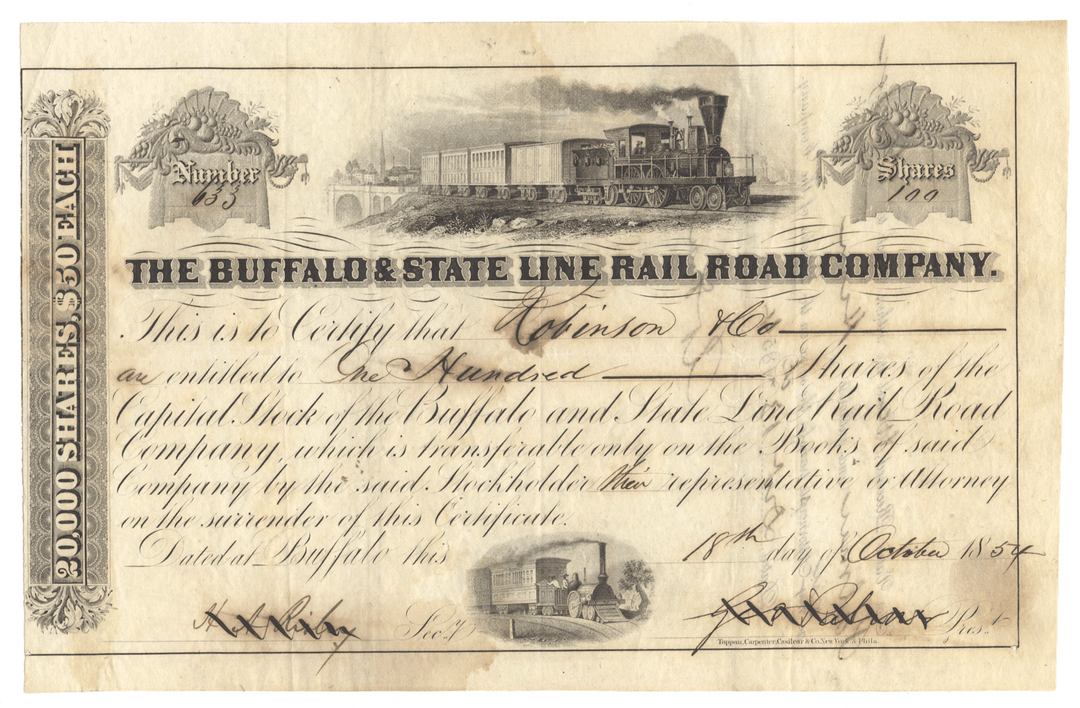 20,000 SHARES, $50 EACH
Number
633
Shares
100
THE BUFFALO & STATE LINE RAIL ROAD COMPANY.
This is to Certify that Robinson & Co
are entitled to One Hundred Shares of the
Capital Stock of the Buffalo and State Line Rail Road
Company, which is transferable only on the Books of said
Company by the said Stockholder their representative or Attorney
on the surrender of this Certificate.
Dated at Buffalo this 18th day of October 1854
Sec.y Pres.t
Toppan, Carpenter, Casilear & Co. New York & Phila.